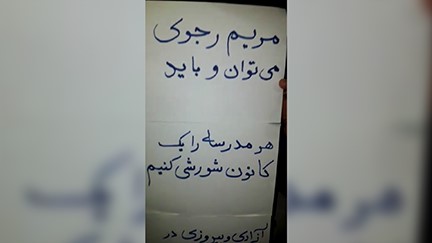 مریم رجوی
می توان و باید
هر مدرسه را یک
کانون شورشی کنیم
آزادی و پیروزی در